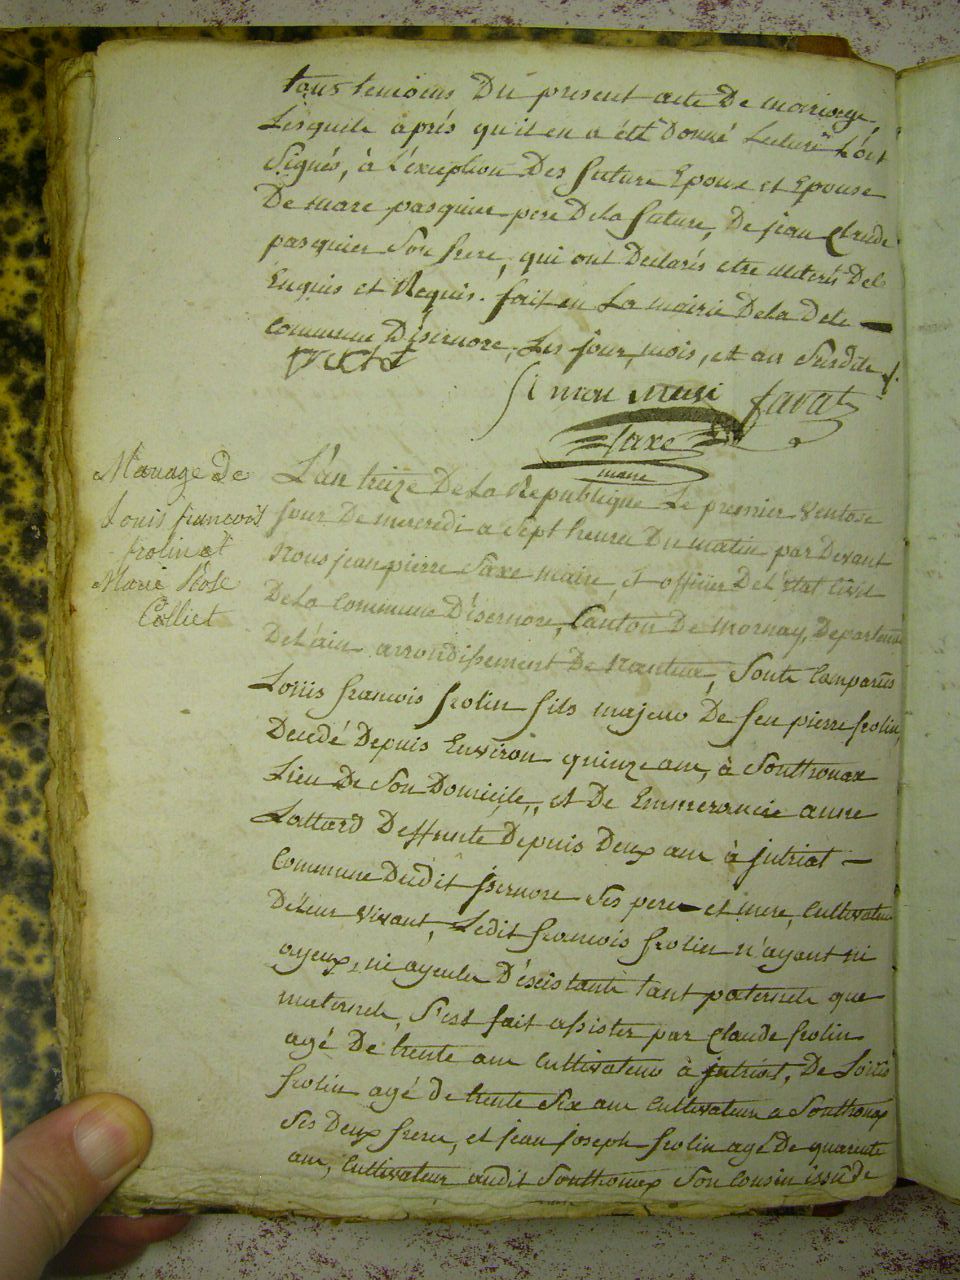 tous temoins Du present acte De mariage,
Lesquels aprés qu'il en a été Donné Lecture L'ont
signés, à L'exception Des future Epoux et Epouse
De marc pasquier pere De la future, De jean Claude
pasquier Son frere, qui ont Declarés etre illiterés Del
Enquis et Requis. fait en La mairie De la dite
Commune D'isernore, Les jour, mois, et an Susdits
Simon Favat
Saxe
maire
Mariage de
Louis françois
frolin et
Marie Rose
Colliet
L'an treize De La Republique Le premier Ventose
jour De mercredi a sept heures Du matin par Devant
Nous jean pierre Saxe maire, et officier De L'état Civil
De La Commune D'isernore, Canton De Mornay, Departem
De L'ain arrondissement De Nantua, Sont Comparus
Loüis francois frolin fils majeur De feu pierre frolin,
Decedé Depuis Environ quinze ans, à Sonthonax
Lieu De Son Domicile, et De Emmerancie anne
Lattard Deffunte Depuis Deux ans à jntriat
Commune Dudit jsernore Ses pere et mere, Cultivateurs
De Leur Vivant, Ledit francois frolin n'ayant ni
ayeux, ni ayeules D'éxistants tant paternels que
maternels, S'est fait assister par Claude frolin
agé De trente ans Cultivateur à jntriat, De Loüis
frolin agé de trente Six ans Cultivateur a Sonthonax
Ses Deux freres, et jean joseph frolin agé De quarente
ans, Cultivateur audit Sonthonax Son Cousin issû de